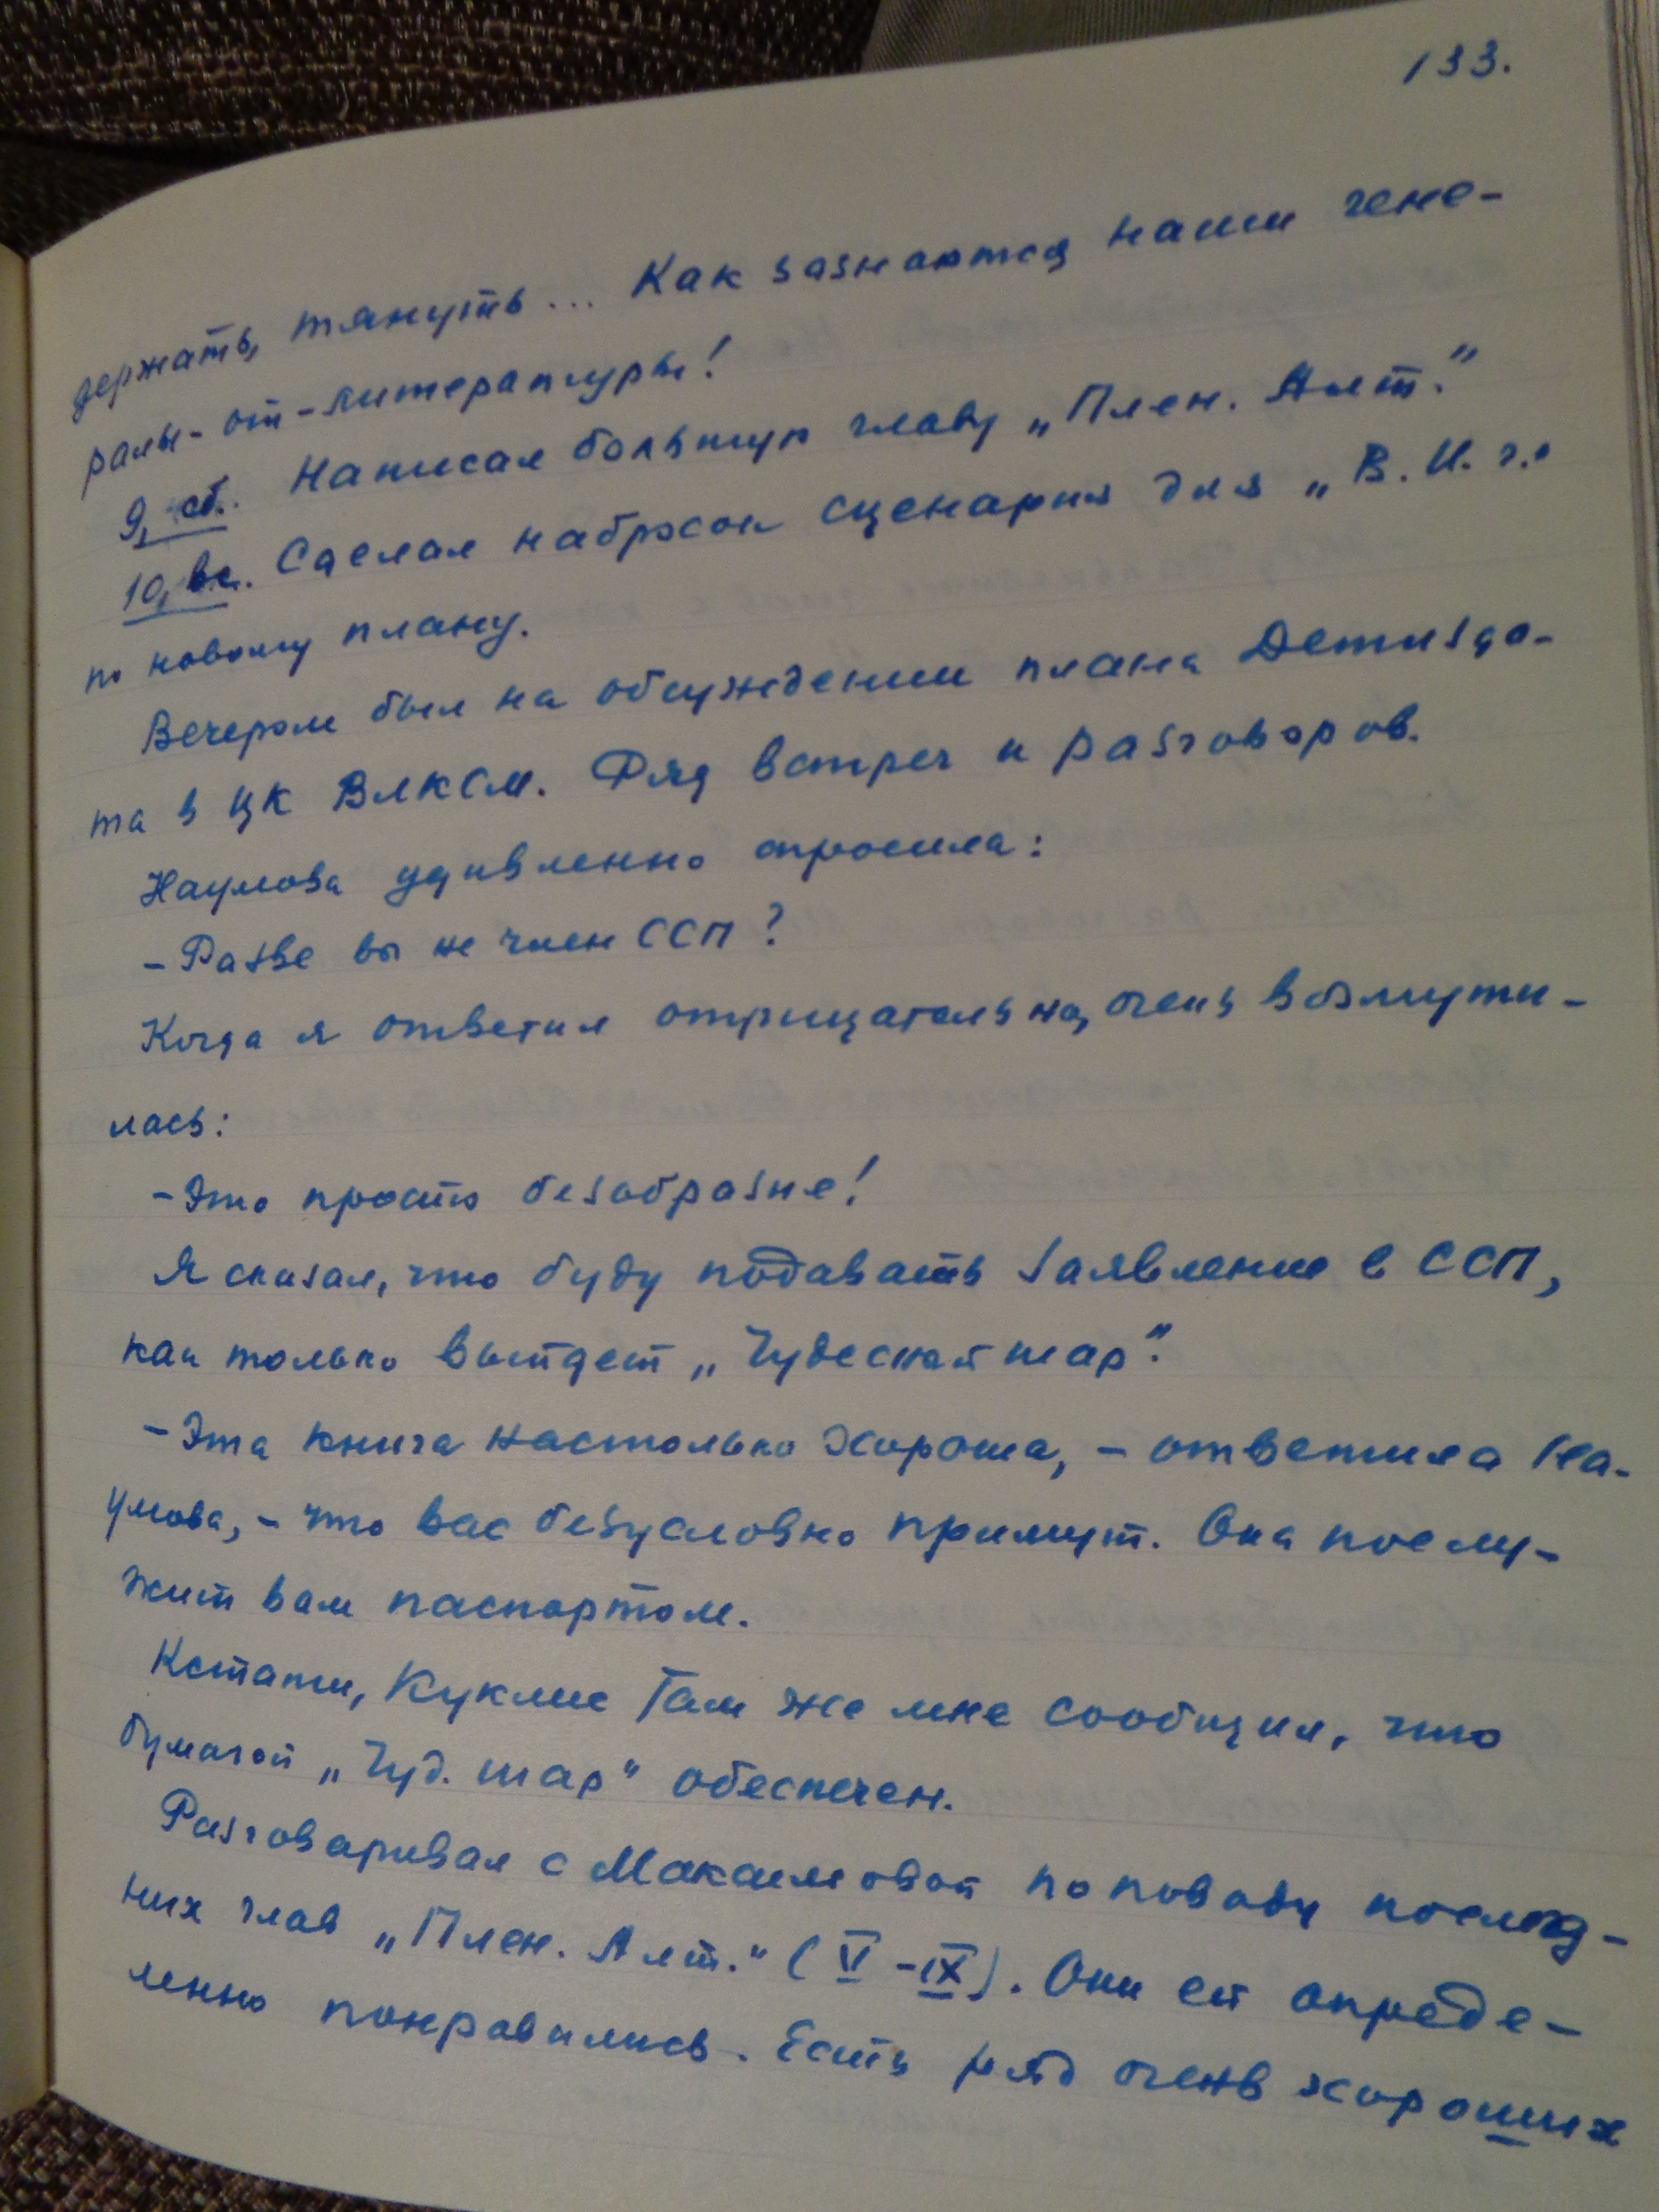 133.
держать, тянуть... Как зазнаются наши гене-
ралы-от-литературы!
9, сб. Написал большую главу „Плен. Алт."
10, вс. Сделал набросок сценария для „В. И. г."
по новому плану.
Вечером был на обсуждении плана Детизда-
та в ЦК ВЛКСМ. Ряд встреч и разговоров.
Наумова удивленно спросила:
- Разве вы не член ССП?
Когда я ответил отрицательно, очень возмути-
лась:
- Это просто безобразие!
Я сказал, что буду подавать заявление в ССП,
как только выйдет „Чудесный шар".
- Эта книга настолько хороша, - ответила На-
умова, - что вас безусловно примут. Она послу-
жит вам паспортом.
Кстати, Куклис там же мне сообщил, что
бумагой „Чуд. шар" обеспечен.
Разговаривал с Максимовой по поводу послед-
них глав „Плен. Алт." (VI - IX). Они ей опреде-
ленно понравились. Есть ряд очень хороших